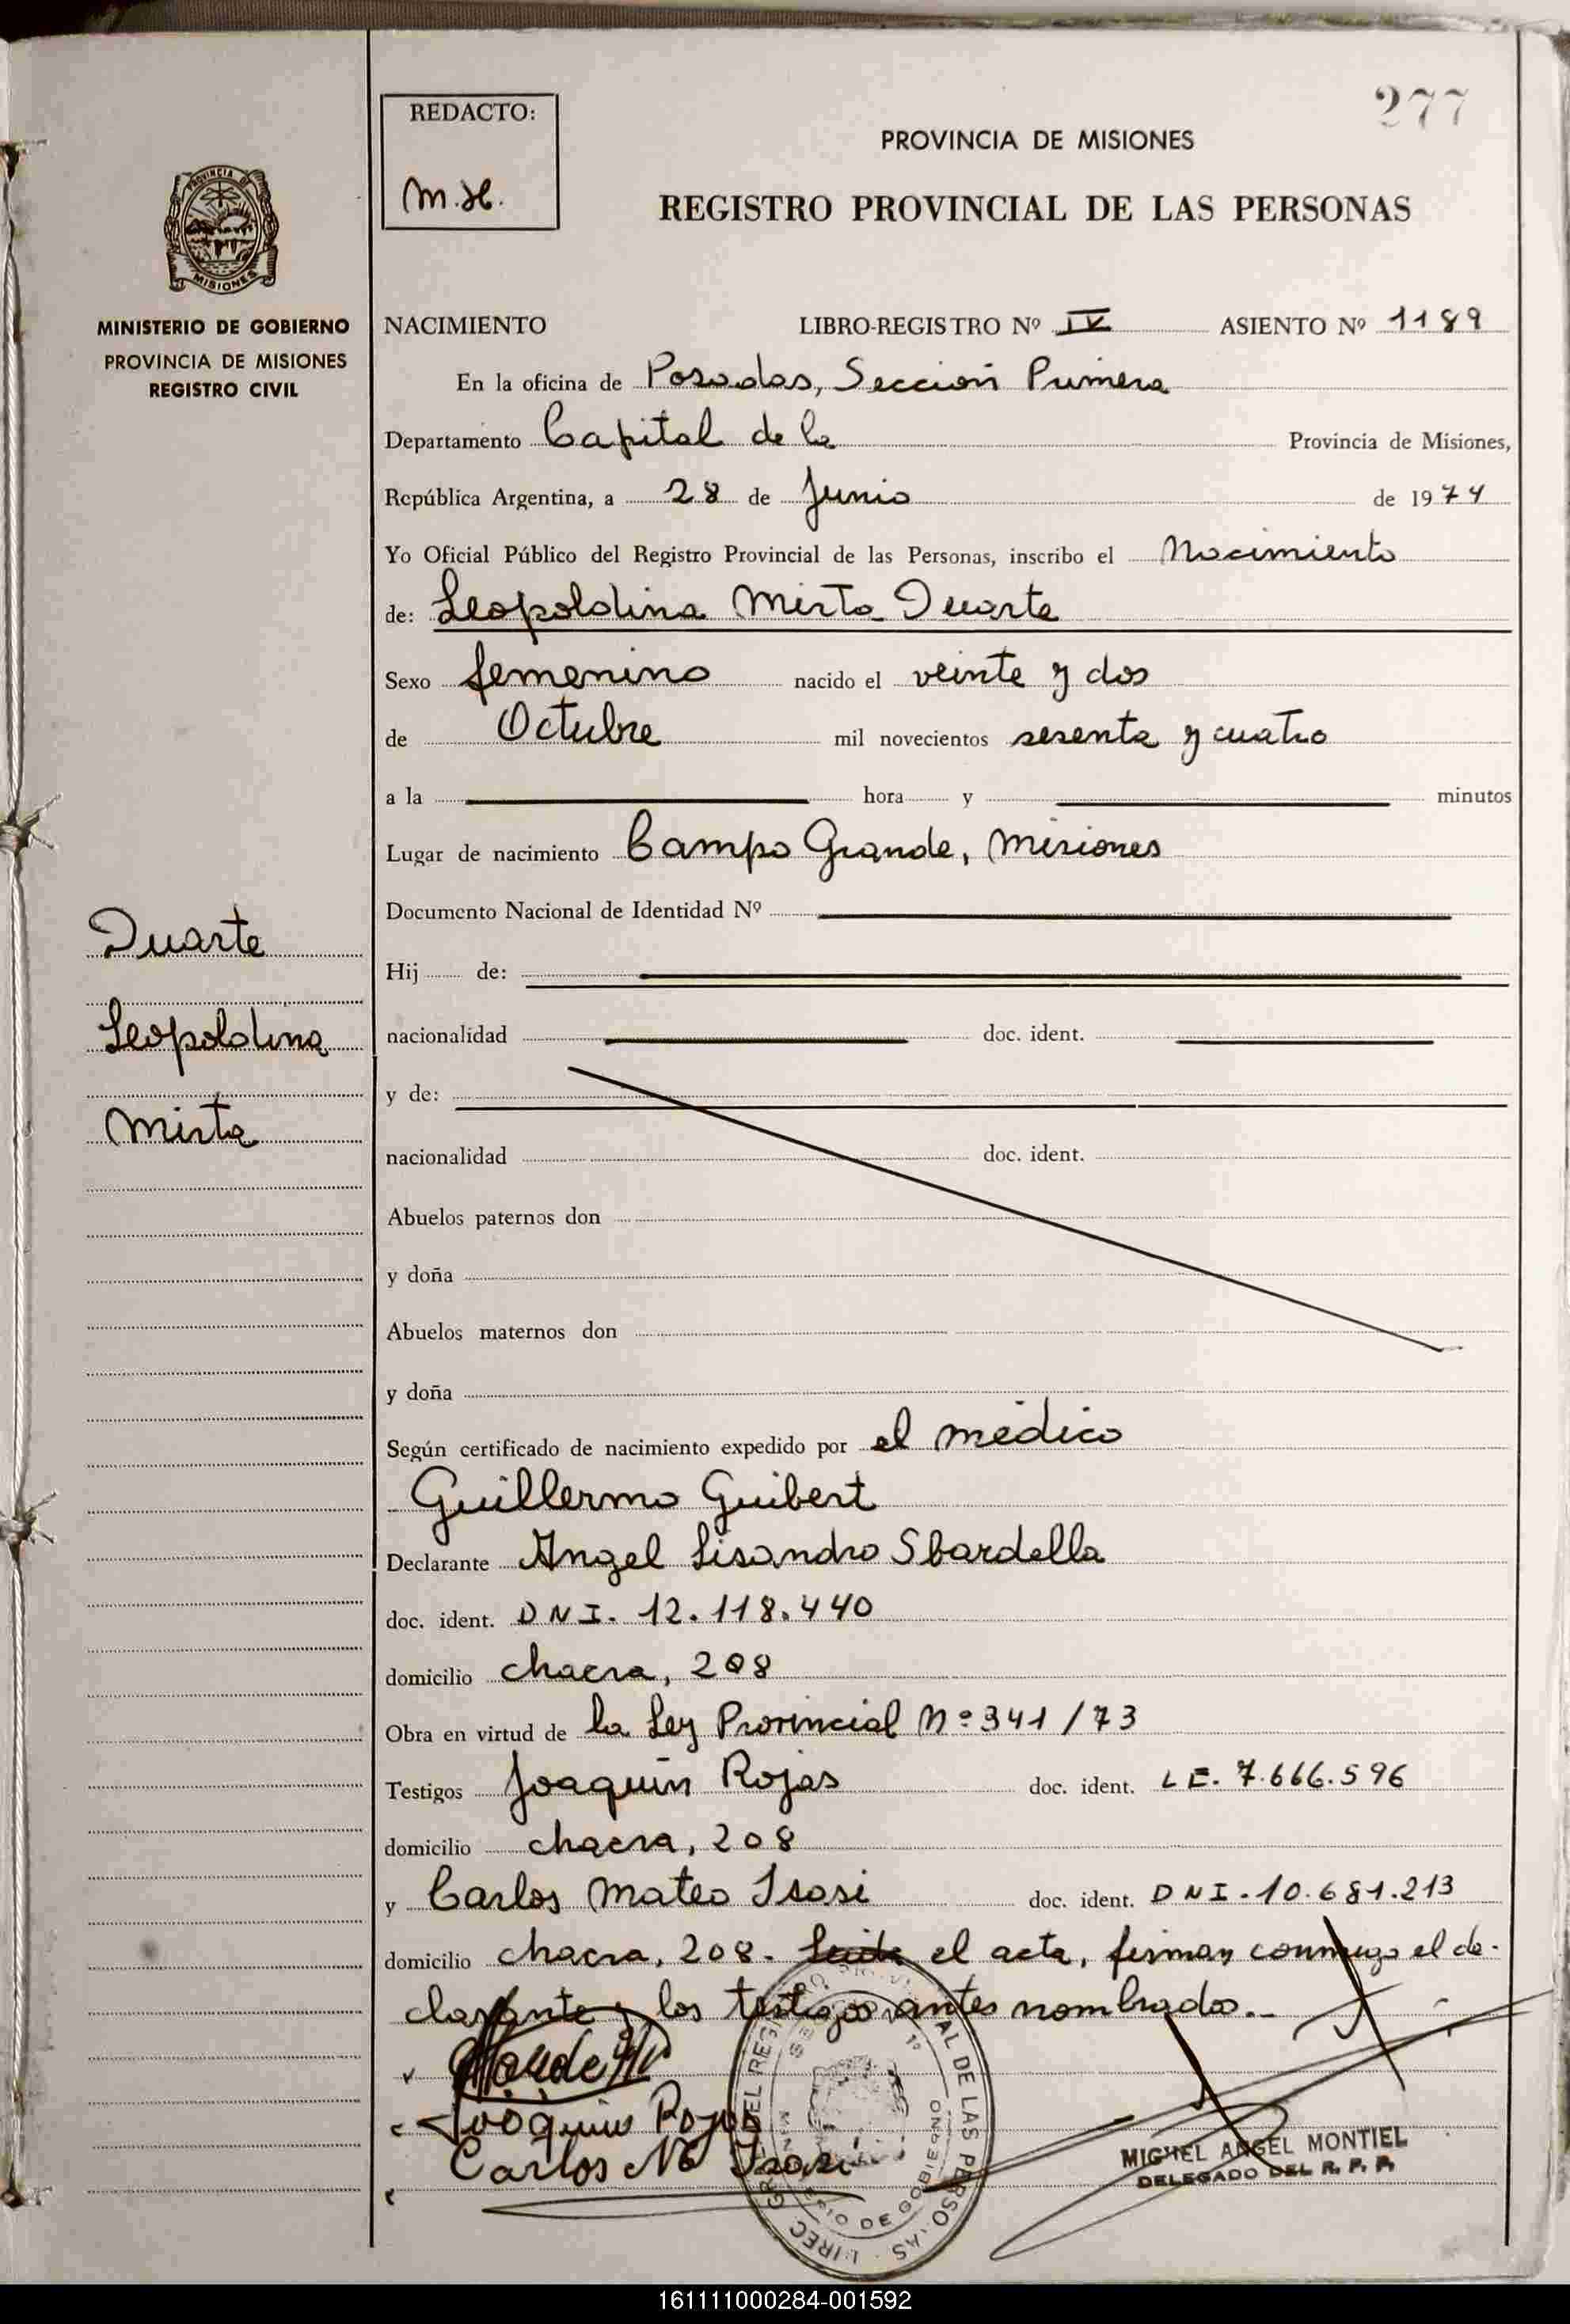 277
REDACTO:
M.H.
PROVINCIA DE MISIONES
REGISTRO PROVINCIAL DE LAS PERSONAS
PROVINCIA DE
MISIONES
MINISTERIO DE GOBIERNO
PROVINCIA DE MISIONES
REGISTRO CIVIL
NACIMIENTO LIBRO-REGISTRO Nº IV ASIENTO Nº 1189
En la oficina de Posadas, Sección Primera
Departamento Capital de la Provincia de Misiones,
República Argentina, a 28 de Junio de 1974
Yo Oficial Público del Registro Provincial de las Personas, inscribo el Nacimiento
de: Leopoldina Mirta Duarte
Sexo femenino nacido el veinte y dos
de Octubre mil novecientos sesenta y cuatro
a la hora y minutos
Lugar de nacimiento Campo Grande, Misiones
Documento Nacional de Identidad Nº
Hij de:
nacionalidad doc. ident.
y de:
nacionalidad doc. ident.
Abuelos paternos don
y doña
Abuelos maternos don
y doña
Según certificado de nacimiento expedido por el médico
Guillermo Guibert
Declarante Angel Lisandro Sbardella
doc. ident. DNI. 12.118.440
domicilio chacra, 208
Obra en virtud de la Ley Provincial Nº 341/73
Testigos Joaquín Rojas doc. ident. LE. 7.666.596
domicilio chacra, 208
y Carlos Mateo Isasi doc. ident. DNI. 10.681.213
domicilio chacra, 208. Leida el acta, firman conmigo el de-
clarante y los testigos antes nombrados.-
Joaquin Rojas
Carlos M Isasi
MIGUEL ANGEL MONTIEL
DELEGADO DEL R. P. P.
Duarte
Leopoldina
Mirta
161111000284-001592